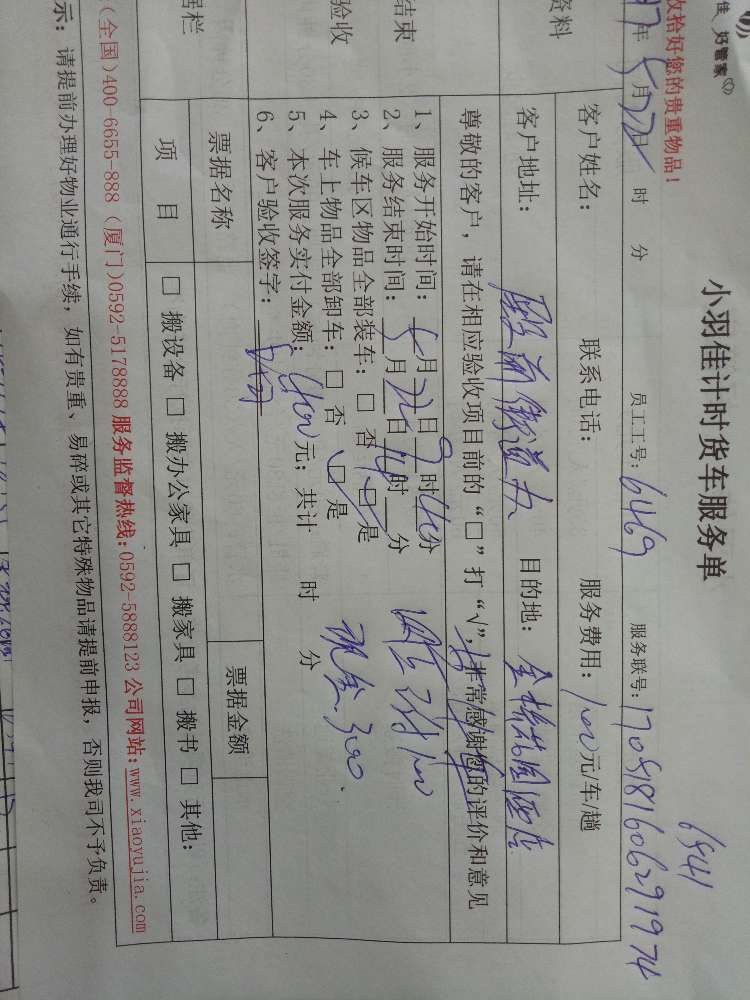 佳 好管家
收拾好您的贵重物品!
小羽佳计时货车服务单
6941
17年5月22日 时 分 员工工号:6469 服务联号:1705181606291974
资料
客户姓名: 联系电话: 服务费用:100元/车/趟
客户地址: 殿前街道办 目的地:
尊敬的客户,请在相应验收项目前的“□”打“√”,非常感谢您的评价和意见
结束
验收
1、服务开始时间:5月22日9时40分
2、服务结束时间:5月22日 时 分
3、候车区物品全部装车:□ 否 □ 是
4、车上物品全部卸车:□ 否 □ 是
5、本次服务实付金额:400元;共计 时 分
现金300
6、客户验收签字:
据栏
票据名称 票据金额
项 目 □ 搬设备 □ 搬办公家具 □ 搬家具 □ 搬书 □ 其他:
(全国)400-6655-888 (厦门)0592-5178888 服务监督热线:0592-5888123 公司网站:www.xiaoyujia.com
示:请提前办理好物业通行手续,如有贵重、易碎或其它特殊物品请提前申报,否则我司不予负责。